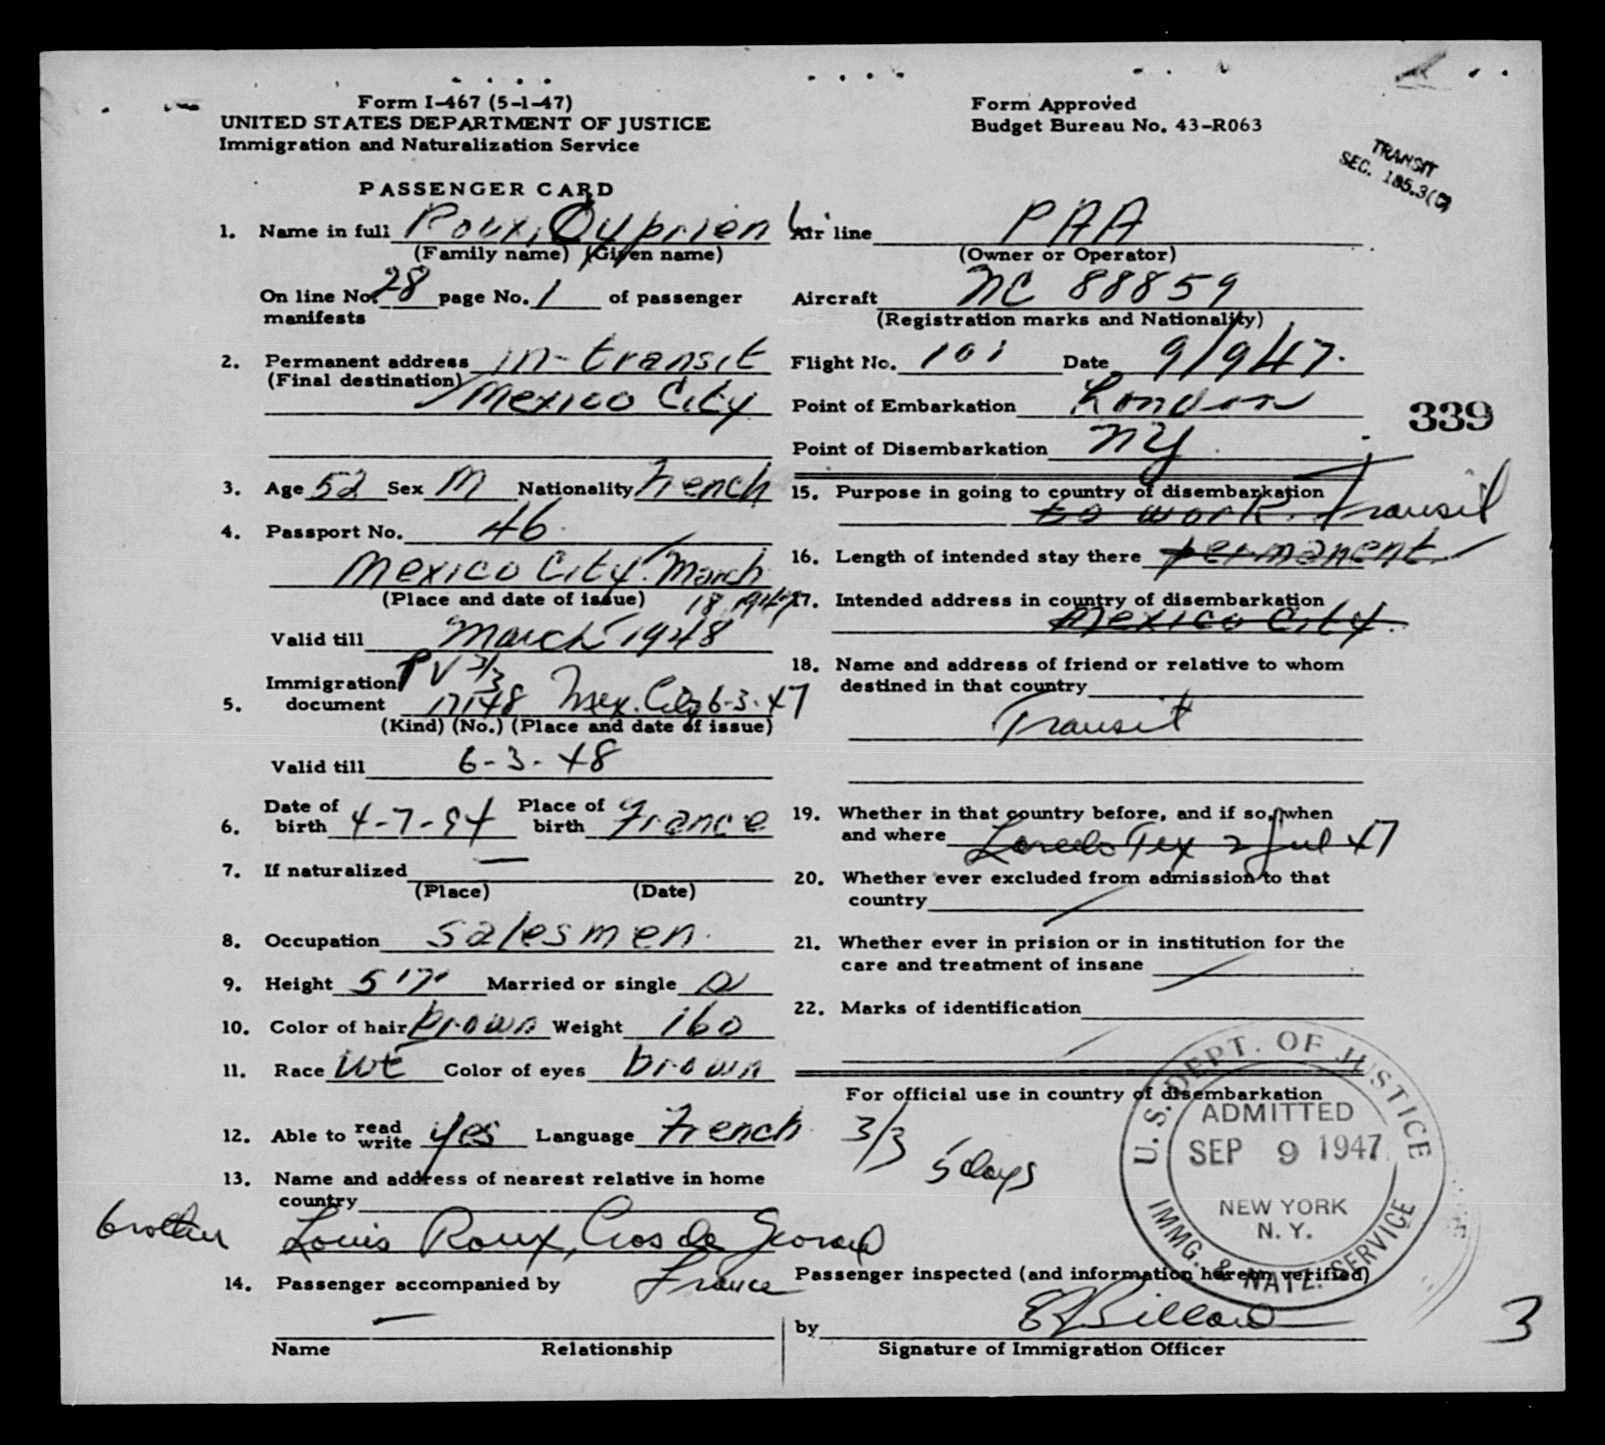 Form I-467 (5-1-47)
UNITED STATES DEPARTMENT OF JUSTICE
Immigration and Naturalization Service
PASSENGER CARD
Form Approved
Budget Bureau No. 43-R063
TRANSIT
SEC. 185.3(
1. Name in full Roux, Cyprien
(Family name) (Given name)
On line No. 28 page No. 1 of passenger
manifests
2. Permanent address in-transit
(Final destination) Mexico City
3. Age 52 Sex M Nationality French
4. Passport No. 46
Mexico City. March
(Place and date of issue) 18 1947
Valid till March 1948
PV 3/3
Immigration
5. document 17148 Mex. City 6-3-47
(Kind) (No.) (Place and date of issue)
Valid till 6-3-48
6. Date of birth 4-7-94 Place of birth France
7. If naturalized —
(Place) (Date)
8. Occupation salesmen
9. Height 5'7" Married or single
10. Color of hair brown Weight 160
11. Race wt Color of eyes brown
12. Able to read write yes Language French
13. Name and address of nearest relative in home
country
brother Louis Roux, Cros de
France
14. Passenger accompanied by
—
Name Relationship
Air line PAA
(Owner or Operator)
Aircraft NC 88859
(Registration marks and Nationality)
Flight No. 101 Date 9/9/47.
Point of Embarkation London
Point of Disembarkation NY
339
15. Purpose in going to country of disembarkation
to work. Transit
16. Length of intended stay there permanent
17. Intended address in country of disembarkation
Mexico City.
18. Name and address of friend or relative to whom
destined in that country
Transit
19. Whether in that country before, and if so, when
and where Laredo Tex 2 Jul 47
20. Whether ever excluded from admission to that
country /
21. Whether ever in prision or in institution for the
care and treatment of insane /
22. Marks of identification
/
For official use in country of disembarkation
3/3 5 days
U.S. DEPT. OF JUSTICE
ADMITTED
SEP 9 1947
NEW YORK
N. Y.
IMMG. & NATZ. SERVICE
Passenger inspected (and information hereon verified)
by
Signature of Immigration Officer
3